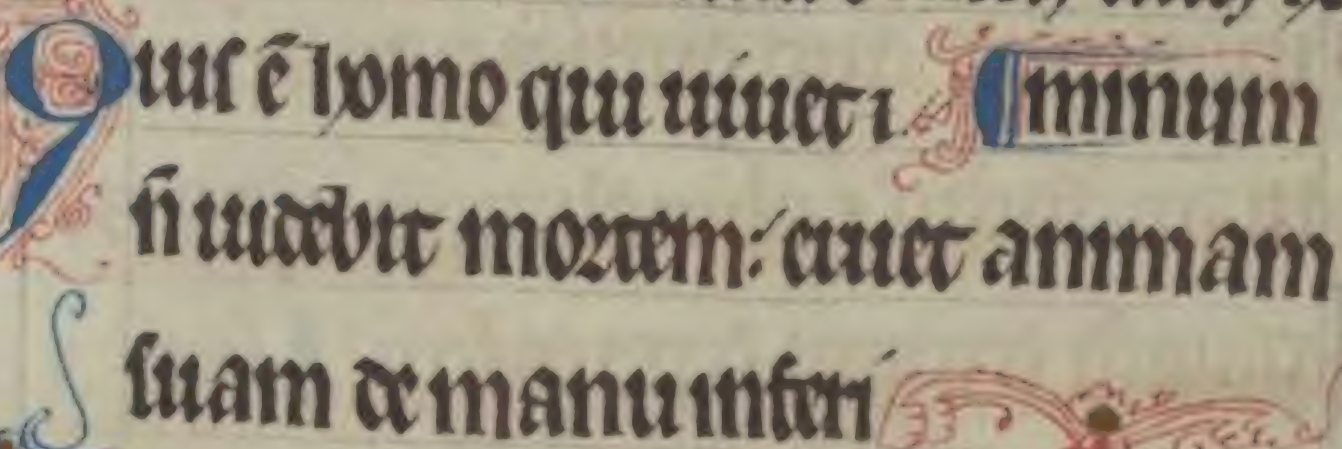 Quis ē homo qui uiuet ⁊ ¶minum
n̄ uidebit mortem: eruet animam
suam de manu inferi